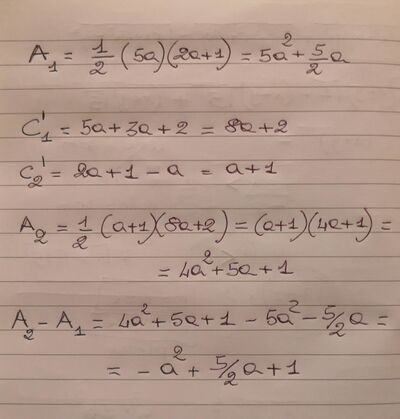 A₁ = 1/2 (5a)(2a+1) = 5a² + 5/2 a
C₁' = 5a+3a+2 = 8a+2
C₂' = 2a+1-a = a+1
A₂ = 1/2 (a+1)(8a+2) = (a+1)(4a+1) =
= 4a²+5a+1
A₂-A₁ = 4a²+5a+1-5a²-5/2a =
= -a²+5/2a+1